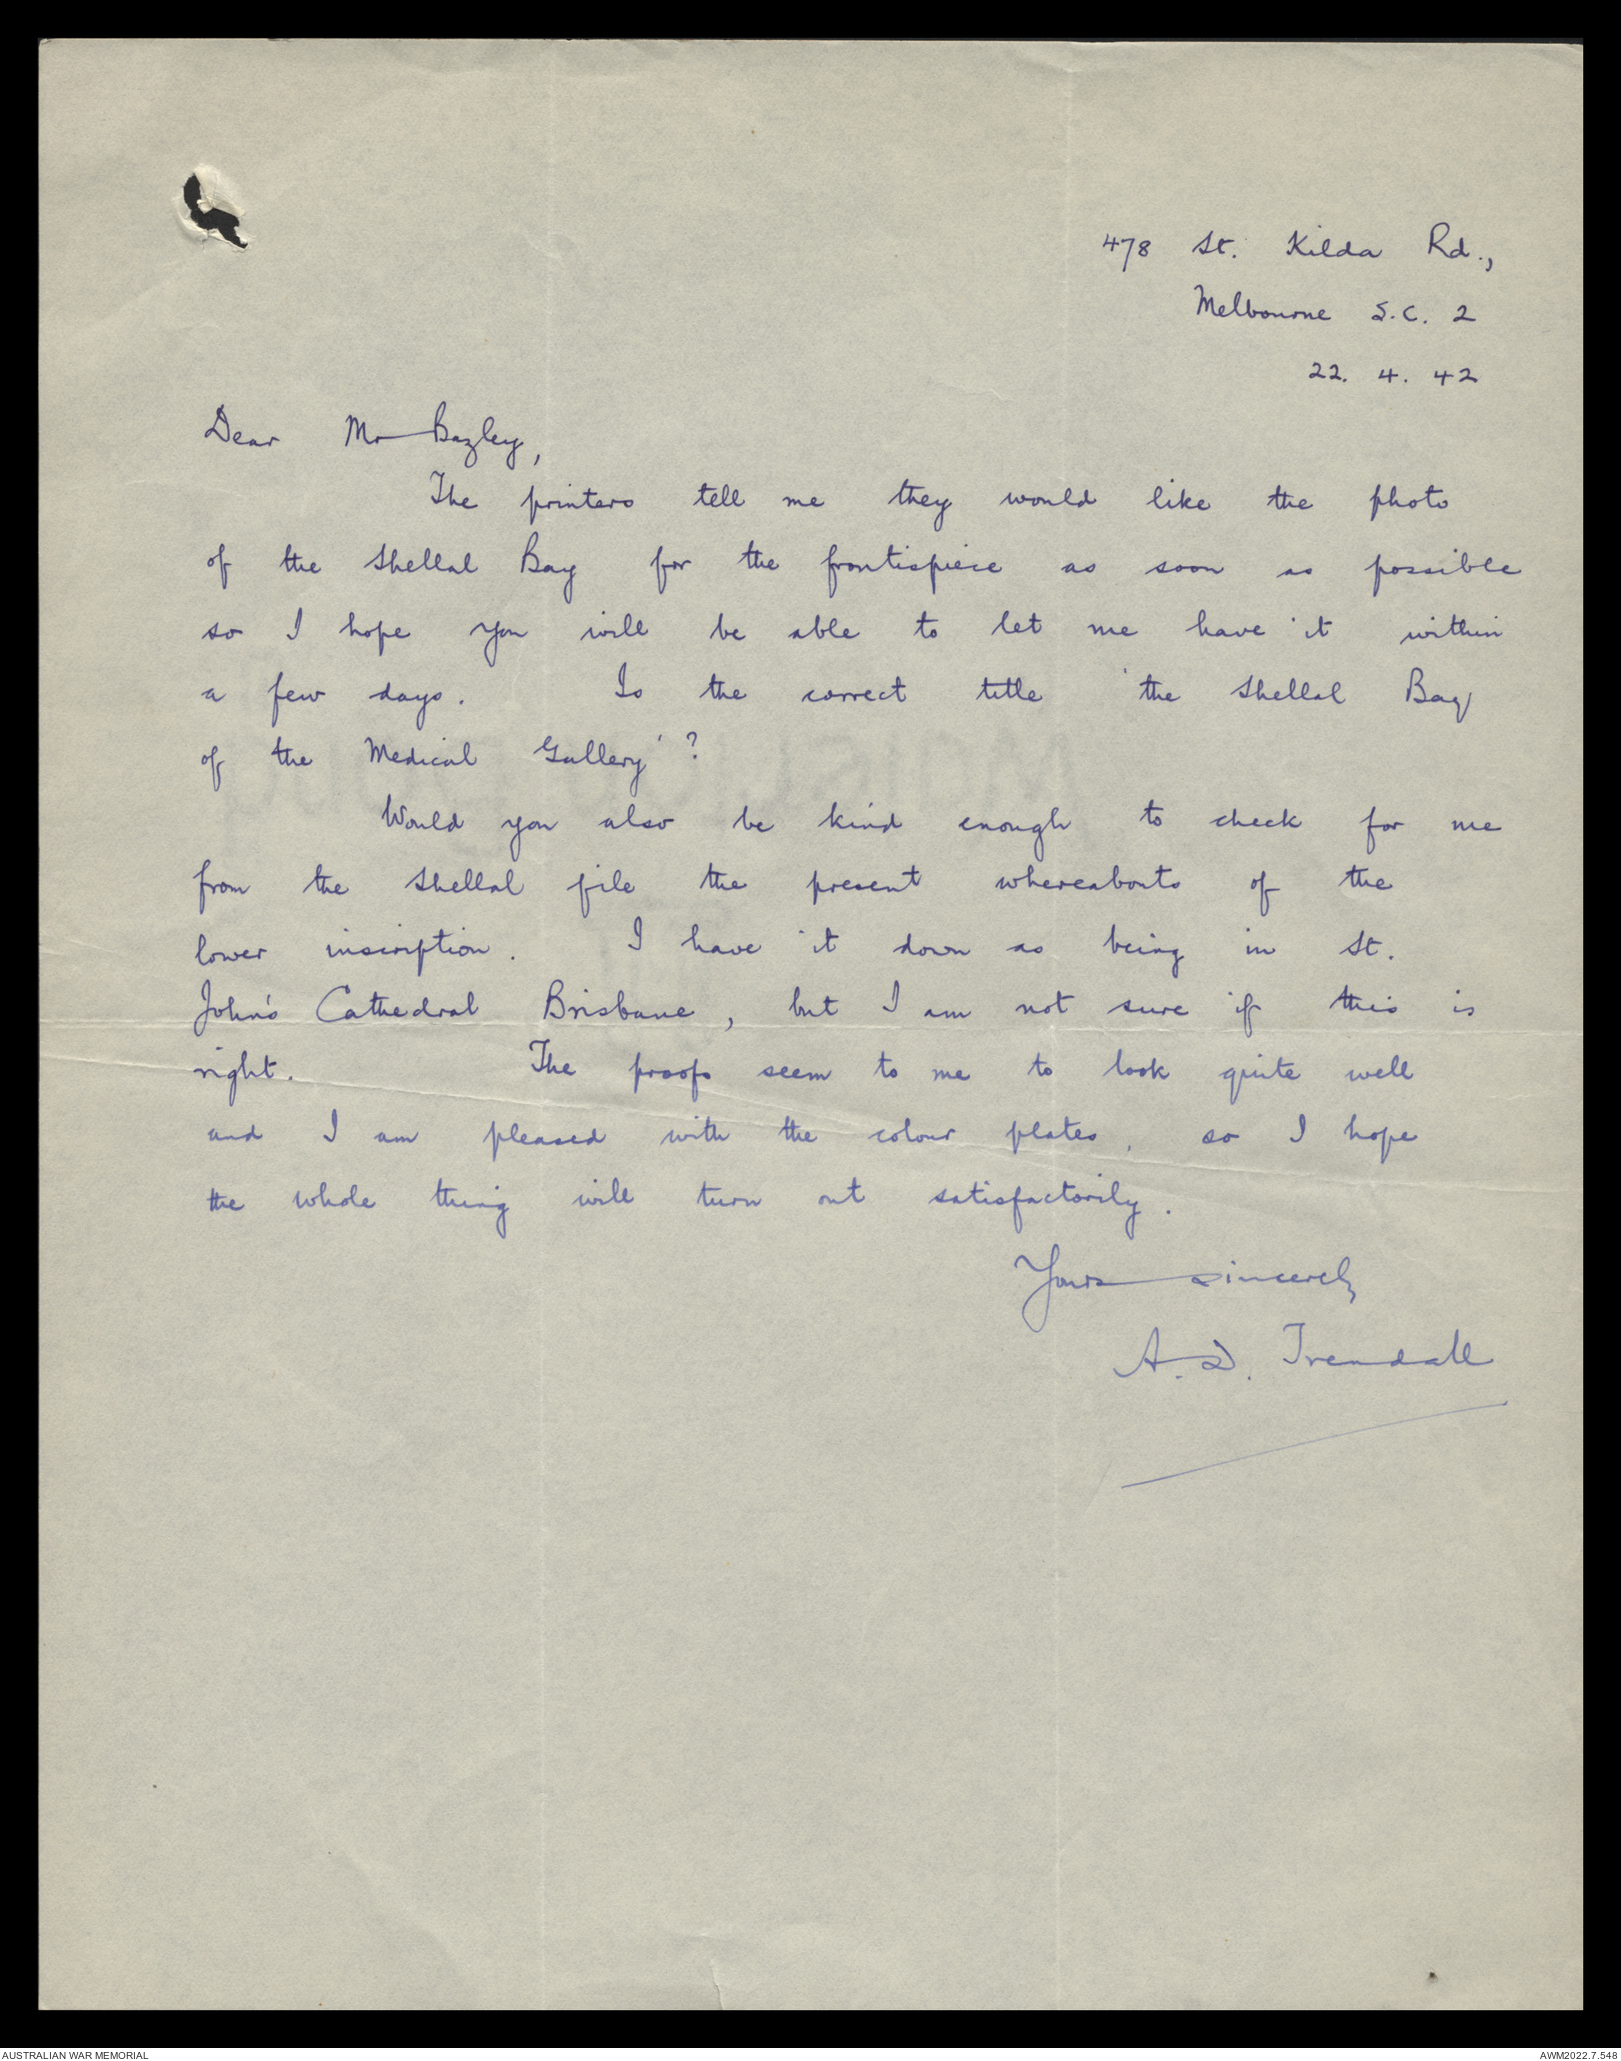 478 St. Kilda Rd.,
Melbourne S.C. 2
22. 4. 42
Dear Mr Bazley,
The printers tell me they would like the photo
of the Shellal Bay for the frontispiece as soon as possible
so I hope you will be able to let me have it within
a few days. Is the correct title 'the Shellal Bay
of the Medical Gallery'?
Would you also be kind enough to check for me
from the Shellal file the present whereabouts of the
lower inscription. I have it down as being in St.
John's Cathedral Brisbane, but I am not sure if this is
right. The proofs seem to me to look quite well
and I am pleased with the colour plates, so I hope
the whole thing will turn out satisfactorily.
Yours sincerely
A. D. Trendall
AUSTRALIAN WAR MEMORIAL
AWM2022.7.548